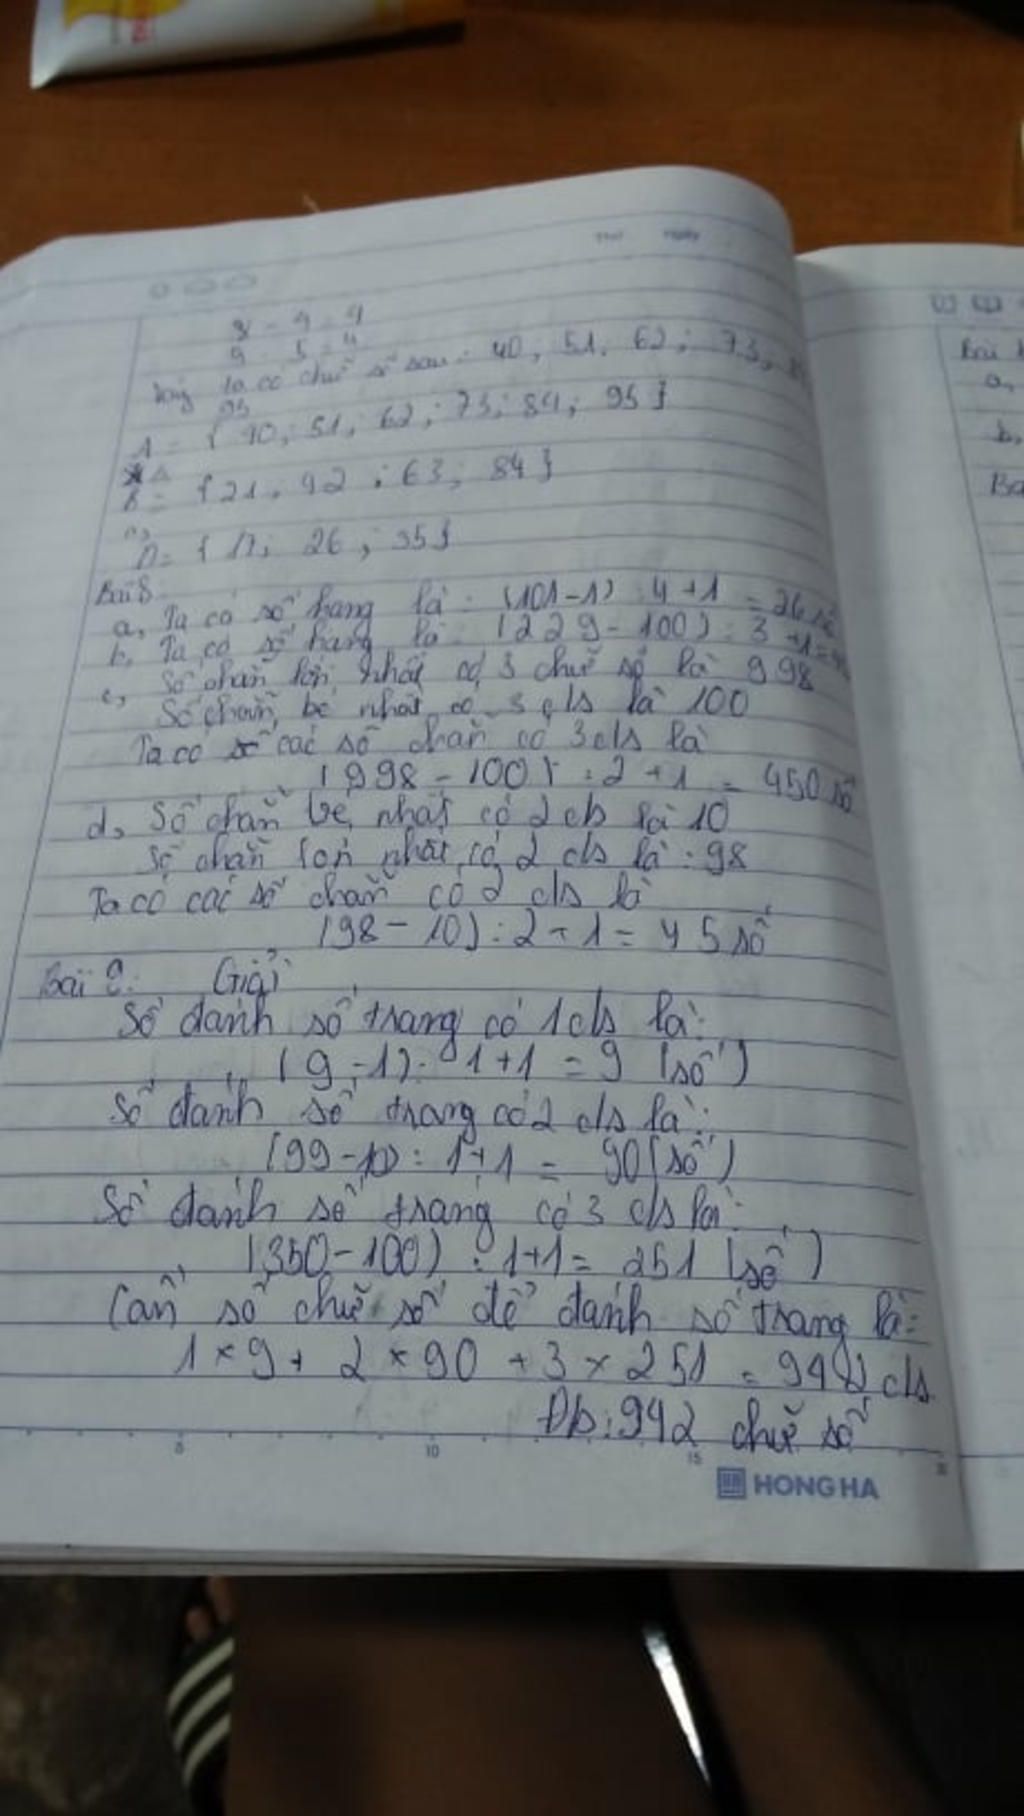 Thứ Ngày
8 - 4 = 4
9 - 5 = 4
Vậy ta có chữ số sau: 40; 51; 62; 73;
95
A = { 40; 51; 62; 73; 84; 95 }
B = { 21; 42; 63; 84 }
D = { 17; 26; 35 }
Bài 8
a, Ta có số hạng là: (101-1) : 4 + 1 = 26 số
b, Ta có số hạng là: (229-100) : 3 + 1 =
c, Số chẵn lớn nhất có 3 chữ số là 998
Số chẵn bé nhất có 3 cls là 100
Ta có số các số chẵn có 3 cls là
(998-100) : 2 + 1 = 450 số
d, Số chẵn bé nhất có 2 cls là 10
Số chẵn lớn nhất có 2 cls là: 98
Ta có các số chẵn có 2 cls là
(98-10) : 2 + 1 = 45 số
Bài 9: Giải
Số đánh số trang có 1 cls là:
(9-1) : 1+1 = 9 (số)
Số đánh số trang có 2 cls là:
(99-10) : 1+1 = 90 (số)
Số đánh số trang có 3 cls là:
(350-100) : 1+1 = 251 (số)
Cần số chữ số để đánh số trang là:
1 × 9 + 2 × 90 + 3 × 251 = 942 cls
Đb: 942 chữ số
5 10 15
HONG HA
Bài
a,
b,